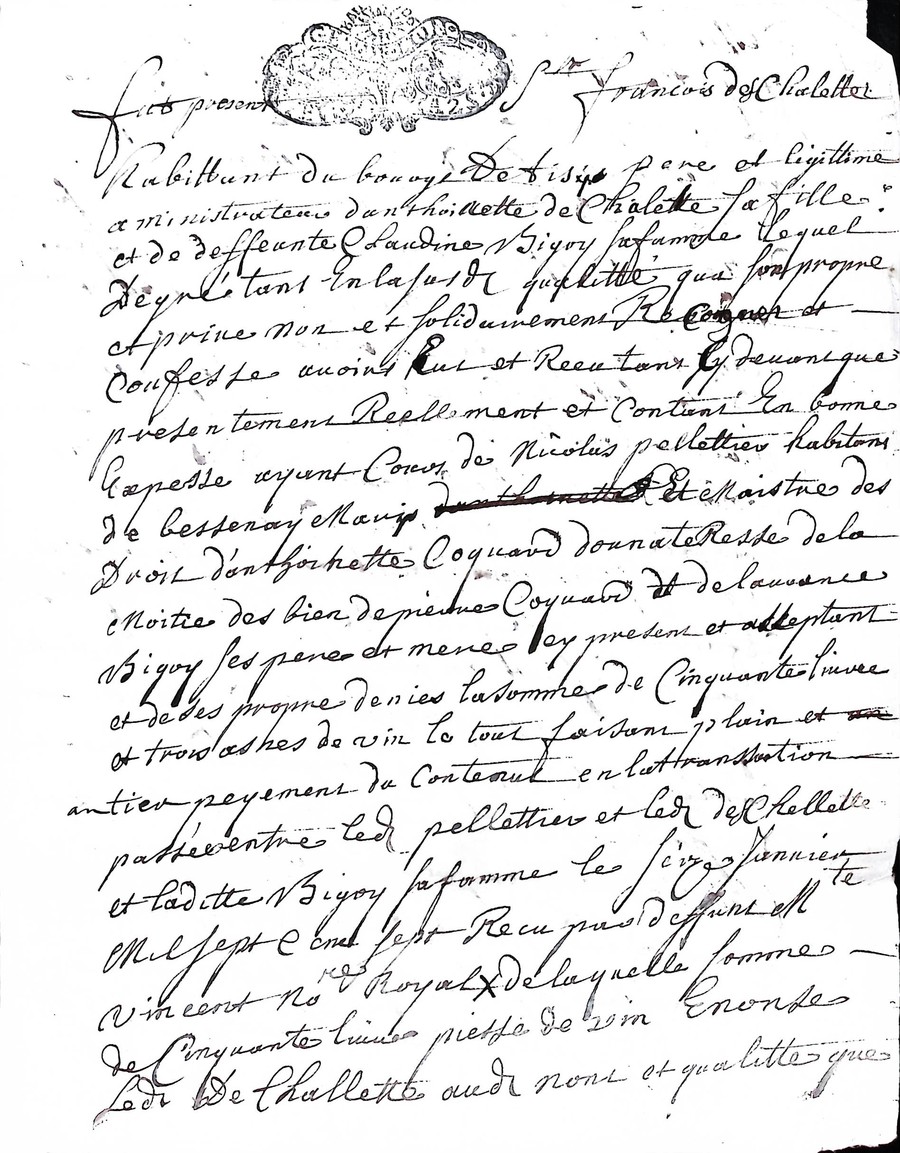 fut present Sr francois desChalette
Habittant du bourgs De tisy pere et ligittime
aministrateur danthoinette de Chalette sa fille
et de deffeunte Claudine Bigoy sa famme lequel
De gré tant En lasusd qualitté qua son propre
et prive non et solidairement Recognen et
Confesse avoirs Eut et Receu tant Cy devant que
presentement Reellement et Contant En bonne
Expesse ayant Cours de Nicolas pellettier habitans
de bessenay Mary danthoinette Et Maistre des
Droit danthoinette Coquard donnateresse de la
Moitie des bien de pierre Coquard et de laurance
Bigoy ses pere et mere Cy present et acceptant
et de ses propre denies la somme de Cinquante livree
et trois asnes de vin le tout faisant plain et an
antier peyement du Contenut en la transsation
passée entre led pellettier et led desChellette
et laditte Bigoy sa famme le seize Janvier
Mil sept Cent sept Receu par deffunt Mte
vincent Nore Royal X de laquelle somme
de Cinquante livree piesse de vin Enonse
Led De Challette aud nons et qualitte que